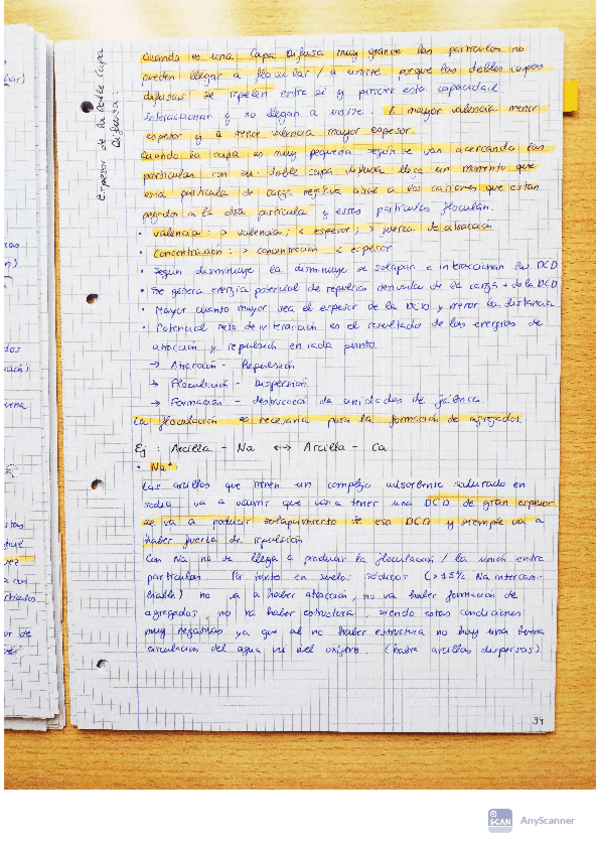 Espesor de la Doble Capa
Difusa:
Cuando es una Capa Difusa muy grande las partículas no
pueden llegar a flocular / a unirse porque las dobles capas
difusas se repelen entre sí y pierden esta capacidad.
Interaccionan y no llegan a unirse. A mayor valencia menor
espesor y a menor valencia mayor espesor.
Cuando la capa es muy pequeña según se van acercando las
partículas con su doble capa difusa llega un momento que
esa partícula de carga negativa atrae a los cationes que están
pegados a la otra partícula y esas partículas floculan.
• Valencia: > valencia; < espesor; > fuerza de atracción
• Concentración: > concentración < espesor
• Según disminuye la distancia se solapan e interaccionan las DCD
• Se genera energía potencial de repulsión derivada de la carga + de la DCD
• Mayor cuanto mayor sea el espesor de la DCD y menor la distancia
• Potencial neto de interacción es el resultado de las energías de
atracción y repulsión en cada punto.
→ Atracción - Repulsión
→ Floculación - Dispersión
→ Formación - destrucción de unidades de fábrica
La floculación es necesaria para la formación de agregados.
Ej: Arcilla - Na ↔ Arcilla - Ca
• Na⁺:
Las arcillas que tienen un complejo adsorbente saturado en
sodio va a ocurrir que van a tener una DCD de gran espesor
se va a producir solapamiento de esa DCD y siempre va a
haber fuerza de repulsión
Con Na no se llega a producir la floculación / la unión entre
partículas. Por tanto en suelos sódicos (>15% Na intercam-
biable) no va a haber atracción, no va haber formación de
agregados no va haber estructura, siendo estas condiciones
muy negativas ya que al no haber estructura no hay una buena
circulación del agua ni del oxígeno. (habrá arcillas dispersas)
34
SCAN AnyScanner